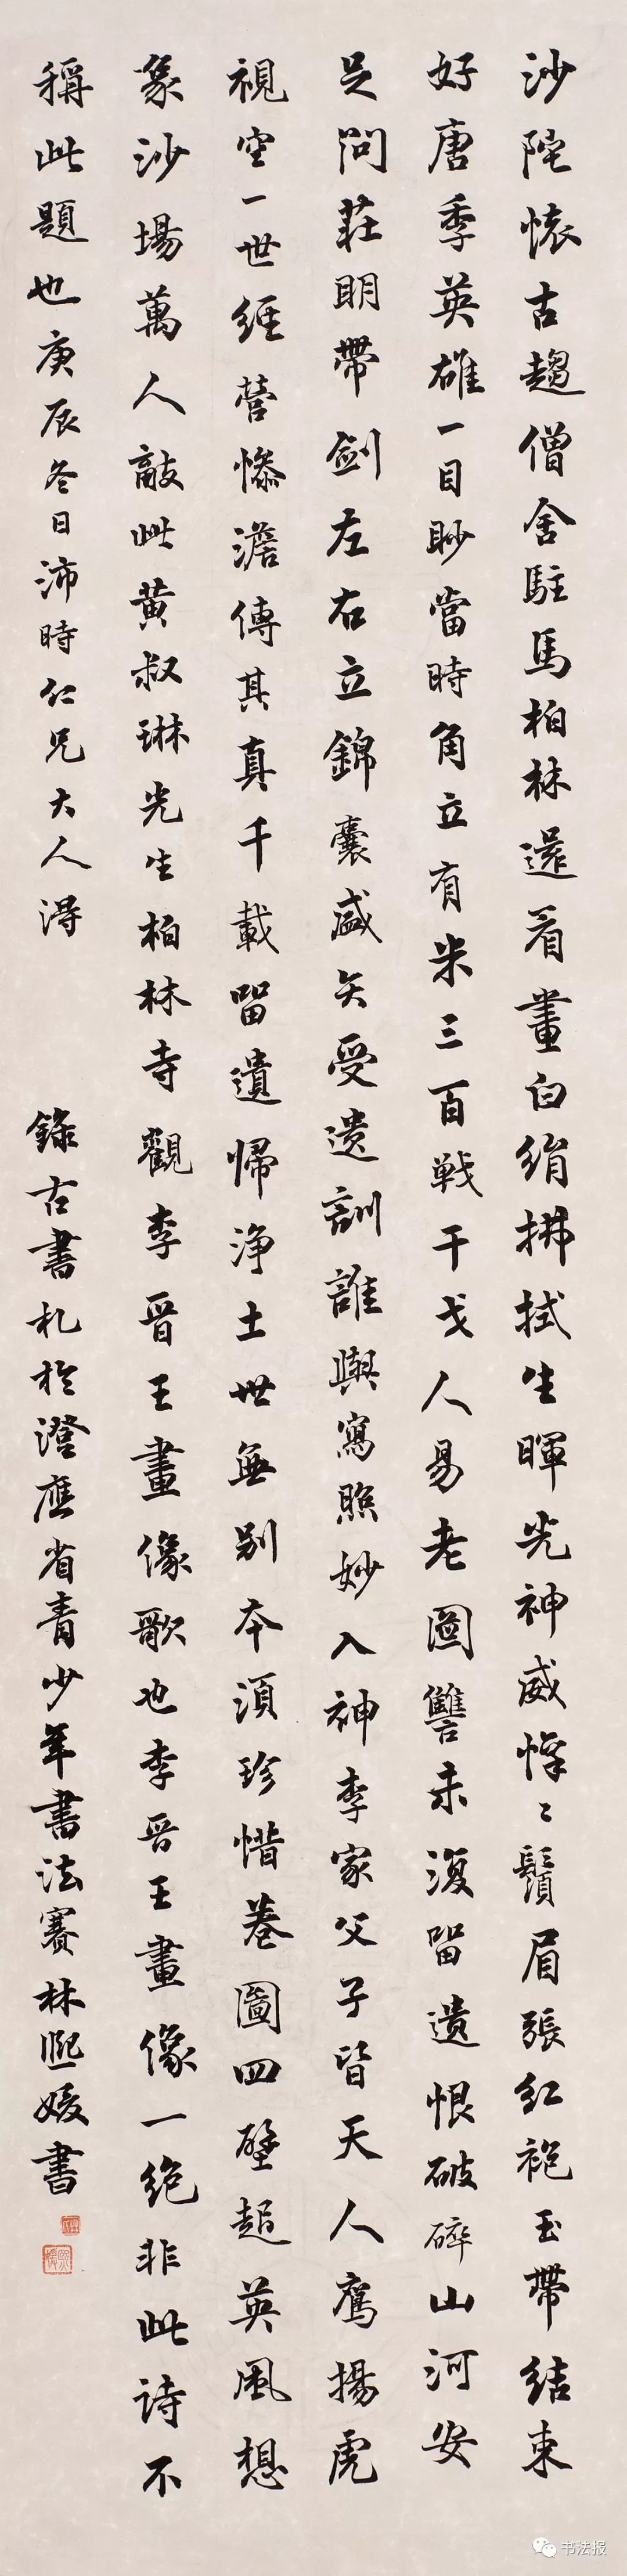 沙陀懷古趨僧舍駐馬柏林還看畫白絹拂拭生暉光神威懍〻鬚眉張紅袍玉帶結束
好唐季英雄一目眇當時角立有朱三百戰干戈人易老圖讐未復留遺恨破碎山河安
足問莊明帶劍左右立錦囊盛矢受遺訓誰與寫照妙入神李家父子皆天人鷹揚虎
視空一世經營慘澹傳其真千載留遺歸淨土世無別本須珍惜卷圖四壁起英風想
象沙場萬人敵此黃叔琳先生柏林寺觀李晉王畫像歌也李晉王畫像一絕非此詩不
稱此題也庚辰冬日沛時仁兄大人得
錄古書札於澄應省青少年書法賽林熙媛書
书法报